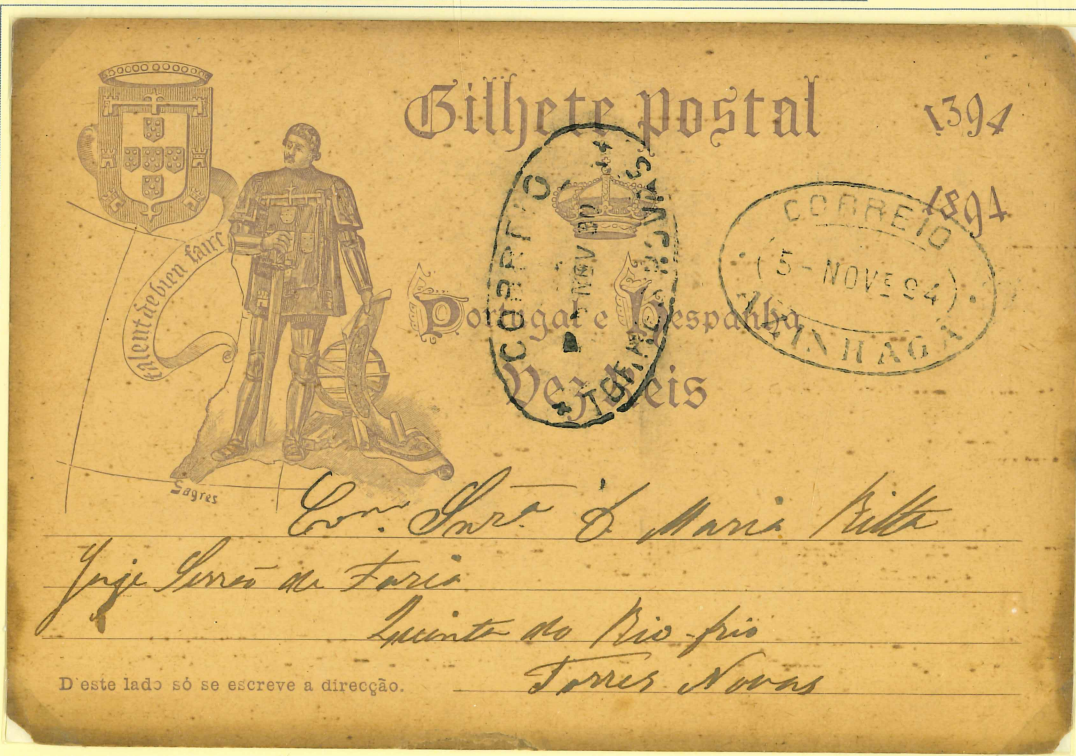 Bilhete postal
1394
1894
talent de bien faire
Portugal e Hespanha
Dez Reis
Sagres
CORREIO
5 - NOVº 94
AZINHAGA
CORREIO
NOV
TORRES NOVAS
Snrª D Maria Ritta
Jorge Serrão de Faria
Quinta do Rio frio
Torres Novas
D'este lado só se escreve a direcção.